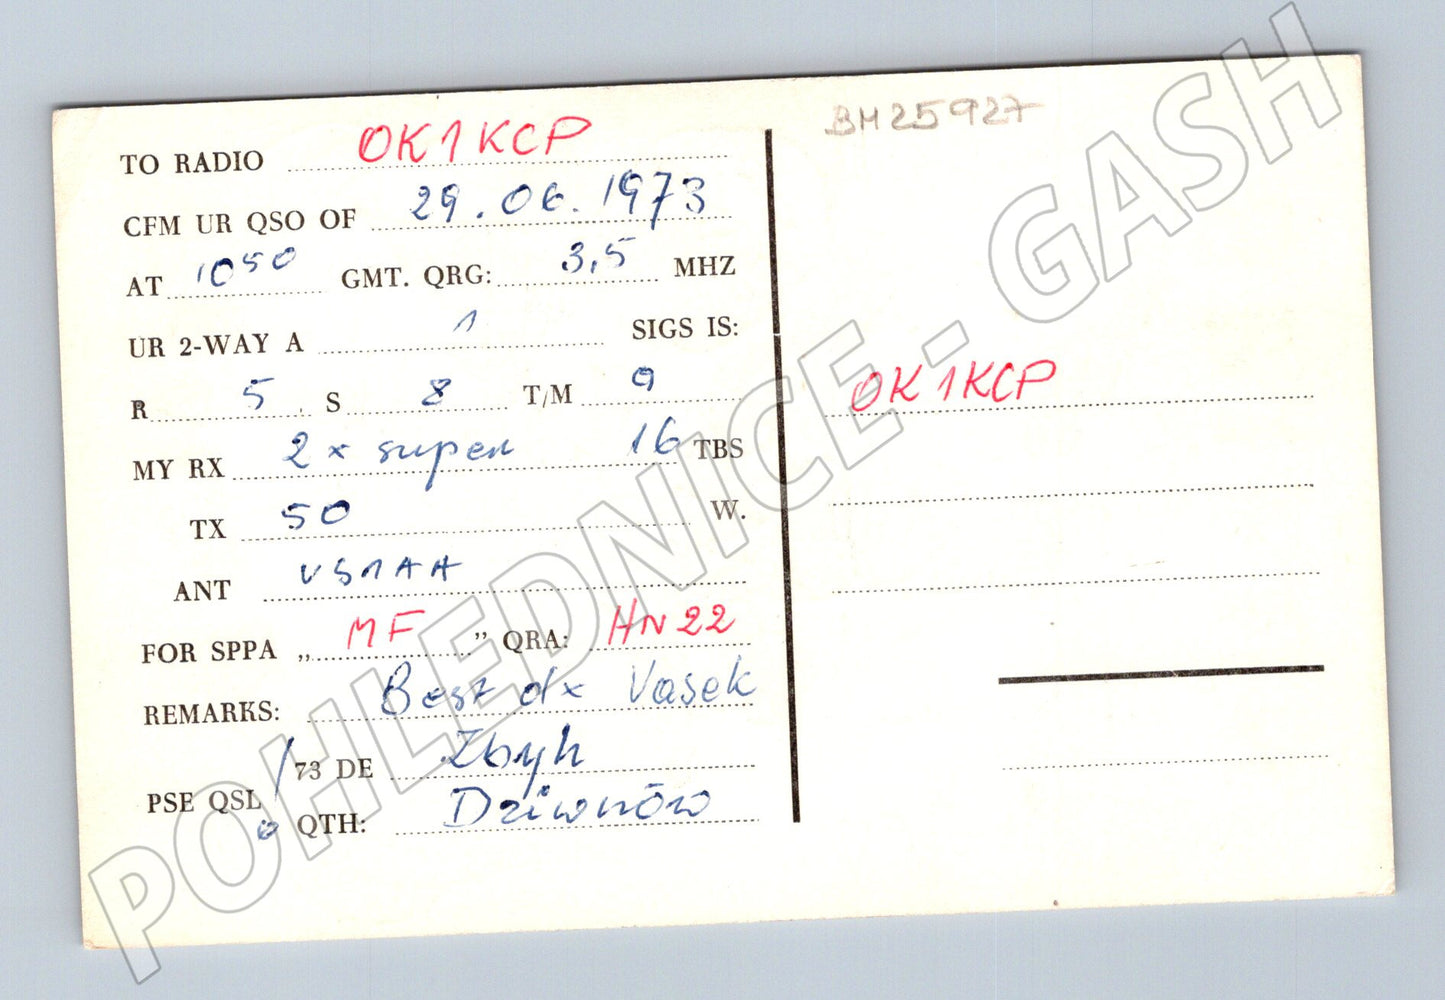 BH25927
TO RADIO OK1KCP
CFM UR QSO OF 29.06.1973
AT 1050 GMT. QRG: 3,5 MHZ
UR 2-WAY A 1 SIGS IS:
R 5 S 8 T/M 9
MY RX 2 x super 16 TBS
TX 50 W.
ANT VS1AA
FOR SPPA „MF” QRA: HN22
REMARKS: Best dx Vasek
/73 DE Zbyh
PSE QSL
QTH: Dziwnów
OK1KCP
POHLEDNICE - GASH